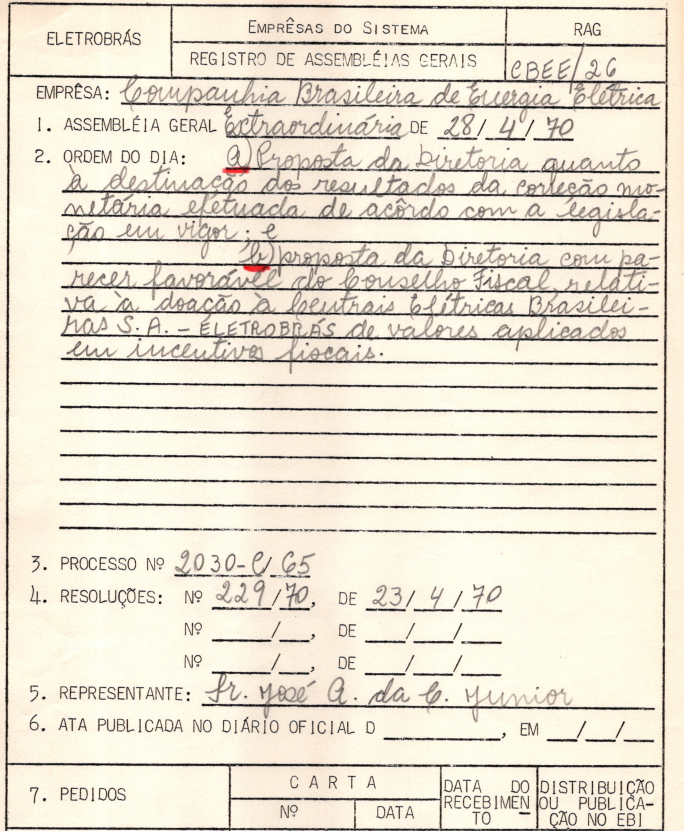 ELETROBRÁS
EMPRÊSAS DO SISTEMA
RAG
REGISTRO DE ASSEMBLÉIAS GERAIS
CBEE/26
EMPRÊSA: Companhia Brasileira de Energia Elétrica
1. ASSEMBLÉIA GERAL Extraordinária DE 28/4/70
2. ORDEM DO DIA: a) Proposta da Diretoria quanto
à destinação dos resultados da correção mo-
netária efetuada de acôrdo com a legisla-
ção em vigor; e
b) proposta da Diretoria com pa-
recer favorável do Conselho Fiscal, relati-
va à doação à Centrais Elétricas Brasilei-
ras S.A. - ELETROBRÁS de valores aplicados
em incentivos fiscais.
3. PROCESSO Nº 2030-C/65
4. RESOLUÇÕES: Nº 229/70, DE 23/4/70
Nº ____/___, DE ___/___/___
Nº ____/___, DE ___/___/___
5. REPRESENTANTE: Sr. José A. da C. Junior
6. ATA PUBLICADA NO DIÁRIO OFICIAL D ________, EM __/__/__
7. PEDIDOS
CARTA
Nº
DATA
DATA DO
RECEBIMEN
TO
DISTRIBUIÇÃO
OU PUBLICA-
ÇÃO NO EBI